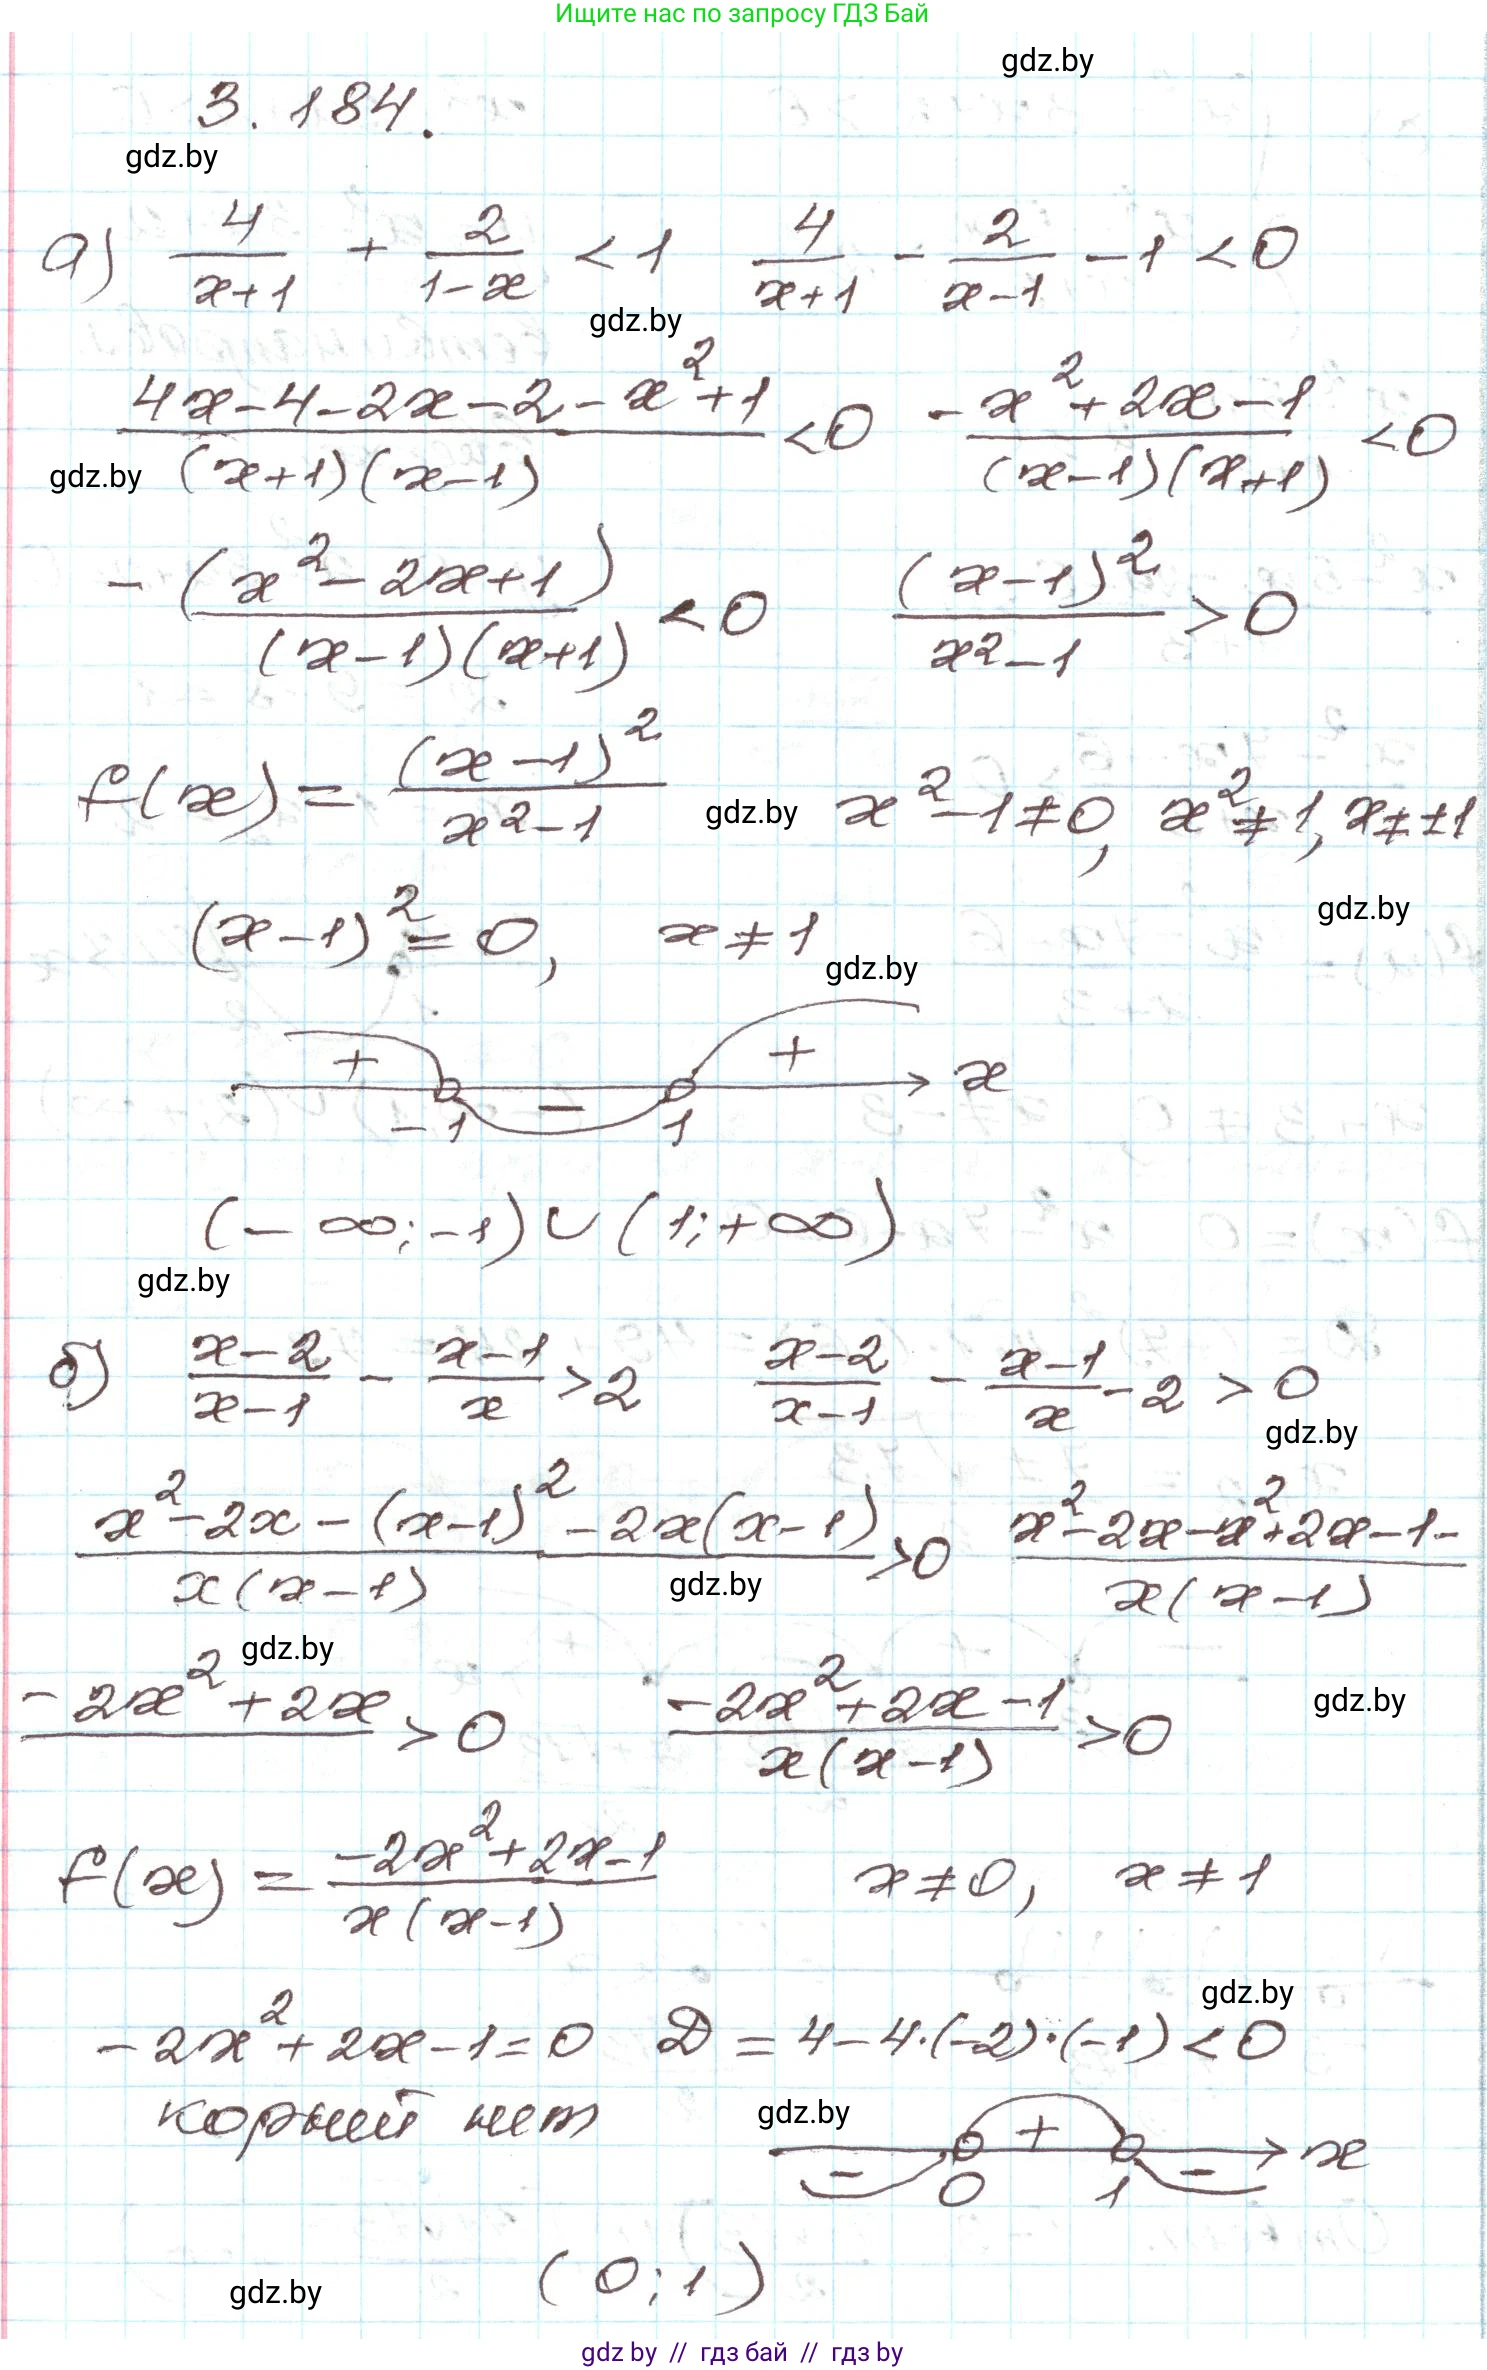 Ищите нас по запросу ГДЗ Бай
gdz.by
3.184.
gdz.by
а) 4/(x+1) + 2/(1-x) < 1   4/(x+1) - 2/(x-1) - 1 < 0
gdz.by
(4x-4-2x-2-x²+1)/((x+1)(x-1)) < 0   (-x²+2x-1)/((x-1)(x+1)) < 0
gdz.by
-(x²-2x+1)/((x-1)(x+1)) < 0   (x-1)²/(x²-1) > 0
f(x) = (x-1)²/(x²-1)   gdz.by   x²-1≠0, x²≠1, x≠±1
gdz.by
(x-1)²=0,   x≠1
gdz.by
+ - + x
-1 1
(-∞;-1)∪(1;+∞)
gdz.by
б) (x-2)/(x-1) - (x-1)/x > 2   (x-2)/(x-1) - (x-1)/x - 2 > 0
gdz.by
(x²-2x-(x-1)²-2x(x-1))/(x(x-1)) > 0   (x²-2x-x²+2x-1-)/(x(x-1))
gdz.by
gdz.by
(-2x²+2x) > 0   (-2x²+2x-1)/(x(x-1)) > 0
gdz.by
f(x) = (-2x²+2x-1)/(x(x-1))   x≠0, x≠1
gdz.by
-2x²+2x-1=0   D = 4-4·(-2)·(-1) < 0
корней нет
gdz.by
- + - x
0 1
(0;1)
gdz.by
gdz by // гдз бай // гдз by